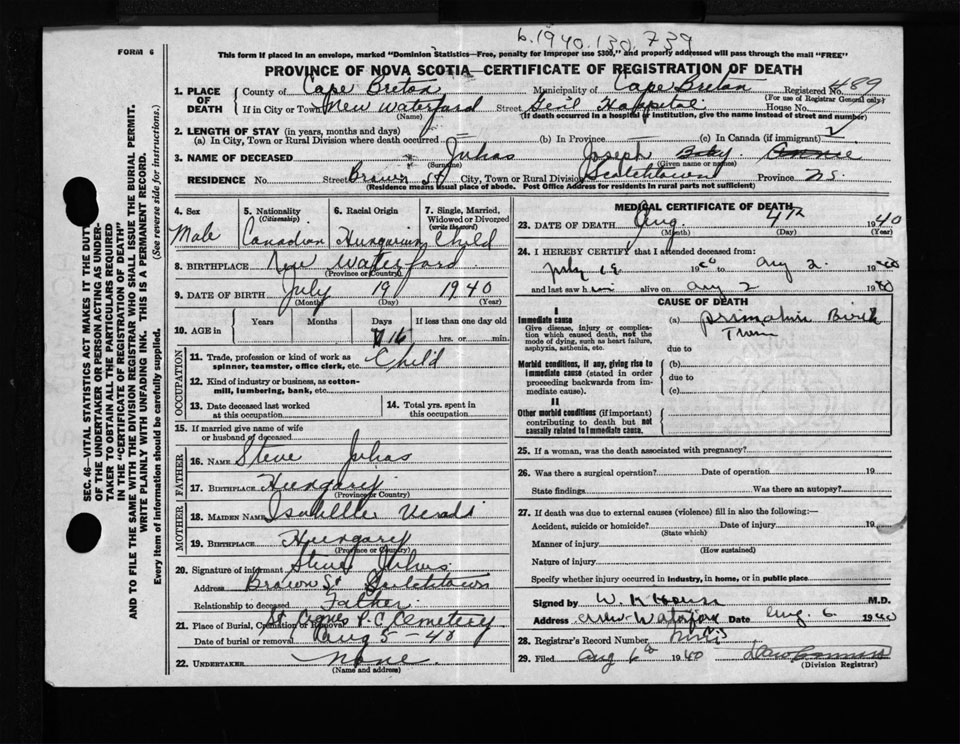 6.1940.130.739
FORM 6
This form if placed in an envelope, marked "Dominion Statistics—Free, penalty for improper use $300," and properly addressed will pass through the mail "FREE"
PROVINCE OF NOVA SCOTIA—CERTIFICATE OF REGISTRATION OF DEATH
1. PLACE OF DEATH County of Cape Breton Municipality of Cape Breton Registered No. 489
(For use of Registrar General only)
If in City or Town New Waterford Street Gen'l Hospital House No.
(Name) (If death occurred in a hospital or institution, give the name instead of street and number)
2. LENGTH OF STAY (in years, months and days)
(a) In City, Town or Rural Division where death occurred (b) In Province (c) In Canada (if immigrant)
3. NAME OF DECEASED Juhas Joseph Baby Annie
(Surname) (Given name or names)
RESIDENCE No. Street Brown St City, Town or Rural Division Scotchtown Province N.S.
(Residence means usual place of abode. Post Office Address for residents in rural parts not sufficient)
4. Sex Male
5. Nationality (Citizenship) Canadian
6. Racial Origin Hungarian
7. Single, Married, Widowed or Divorced (write the word) Child
8. BIRTHPLACE New Waterford
(Province or Country)
9. DATE OF BIRTH July 19 1940
(Month) (Day) (Year)
10. AGE in Years Months Days 16 If less than one day old
hrs. or min.
OCCUPATION
11. Trade, profession or kind of work as spinner, teamster, office clerk, etc. Child
12. Kind of industry or business, as cotton-mill, lumbering, bank, etc.
13. Date deceased last worked at this occupation
14. Total yrs. spent in this occupation
15. If married give name of wife or husband of deceased
FATHER
16. Name Steve Juhas
17. Birthplace Hungary
(Province or Country)
MOTHER
18. Maiden Name Isabelle
19. Birthplace Hungary
(Province or Country)
20. Signature of informant Steve Juhas
Address Brown St Scotchtown
Relationship to deceased Father
21. Place of Burial, Cremation or Removal St. Agnes R.C. Cemetery
Date of burial or removal Aug 5 - 40
22. UNDERTAKER None
(Name and address)
MEDICAL CERTIFICATE OF DEATH
23. DATE OF DEATH Aug. 4th 1940
(Month) (Day) (Year)
24. I HEREBY CERTIFY that I attended deceased from
July 19 1940 to Aug 2. 1940
and last saw him alive on Aug 2 1940
CAUSE OF DEATH
I
Immediate cause (a) Premature Birth
Give disease, injury or complication which caused death, not the mode of dying, such as heart failure, asphyxia, asthenia, etc. Twin
due to
Morbid conditions, if any, giving rise to immediate cause (stated in order proceeding backwards from immediate cause). (b)
due to
(c)
II
Other morbid conditions (if important) contributing to death but not causally related to immediate cause.
25. If a woman, was the death associated with pregnancy?
26. Was there a surgical operation? Date of operation 19
State findings Was there an autopsy?
27. If death was due to external causes (violence) fill in also the following:—
Accident, suicide or homicide? Date of injury 19
(State which)
Manner of injury
(How sustained)
Nature of injury
Specify whether injury occurred in industry, in home, or in public place
Signed by M.D.
Address New Waterford Date Aug. 6 1940
28. Registrar's Record Number
29. Filed Aug 6th 1940
(Division Registrar)
SEC. 46—VITAL STATISTICS ACT MAKES IT THE DUTY
OF THE UNDERTAKER OR PERSON ACTING AS UNDER-
TAKER TO OBTAIN ALL THE PARTICULARS REQUIRED
IN THE "CERTIFICATE OF REGISTRATION OF DEATH"
AND TO FILE THE SAME WITH THE DIVISION REGISTRAR WHO SHALL ISSUE THE BURIAL PERMIT.
WRITE PLAINLY WITH UNFADING INK. THIS IS A PERMANENT RECORD.
Every item of information should be carefully supplied. (See reverse side for instructions.)